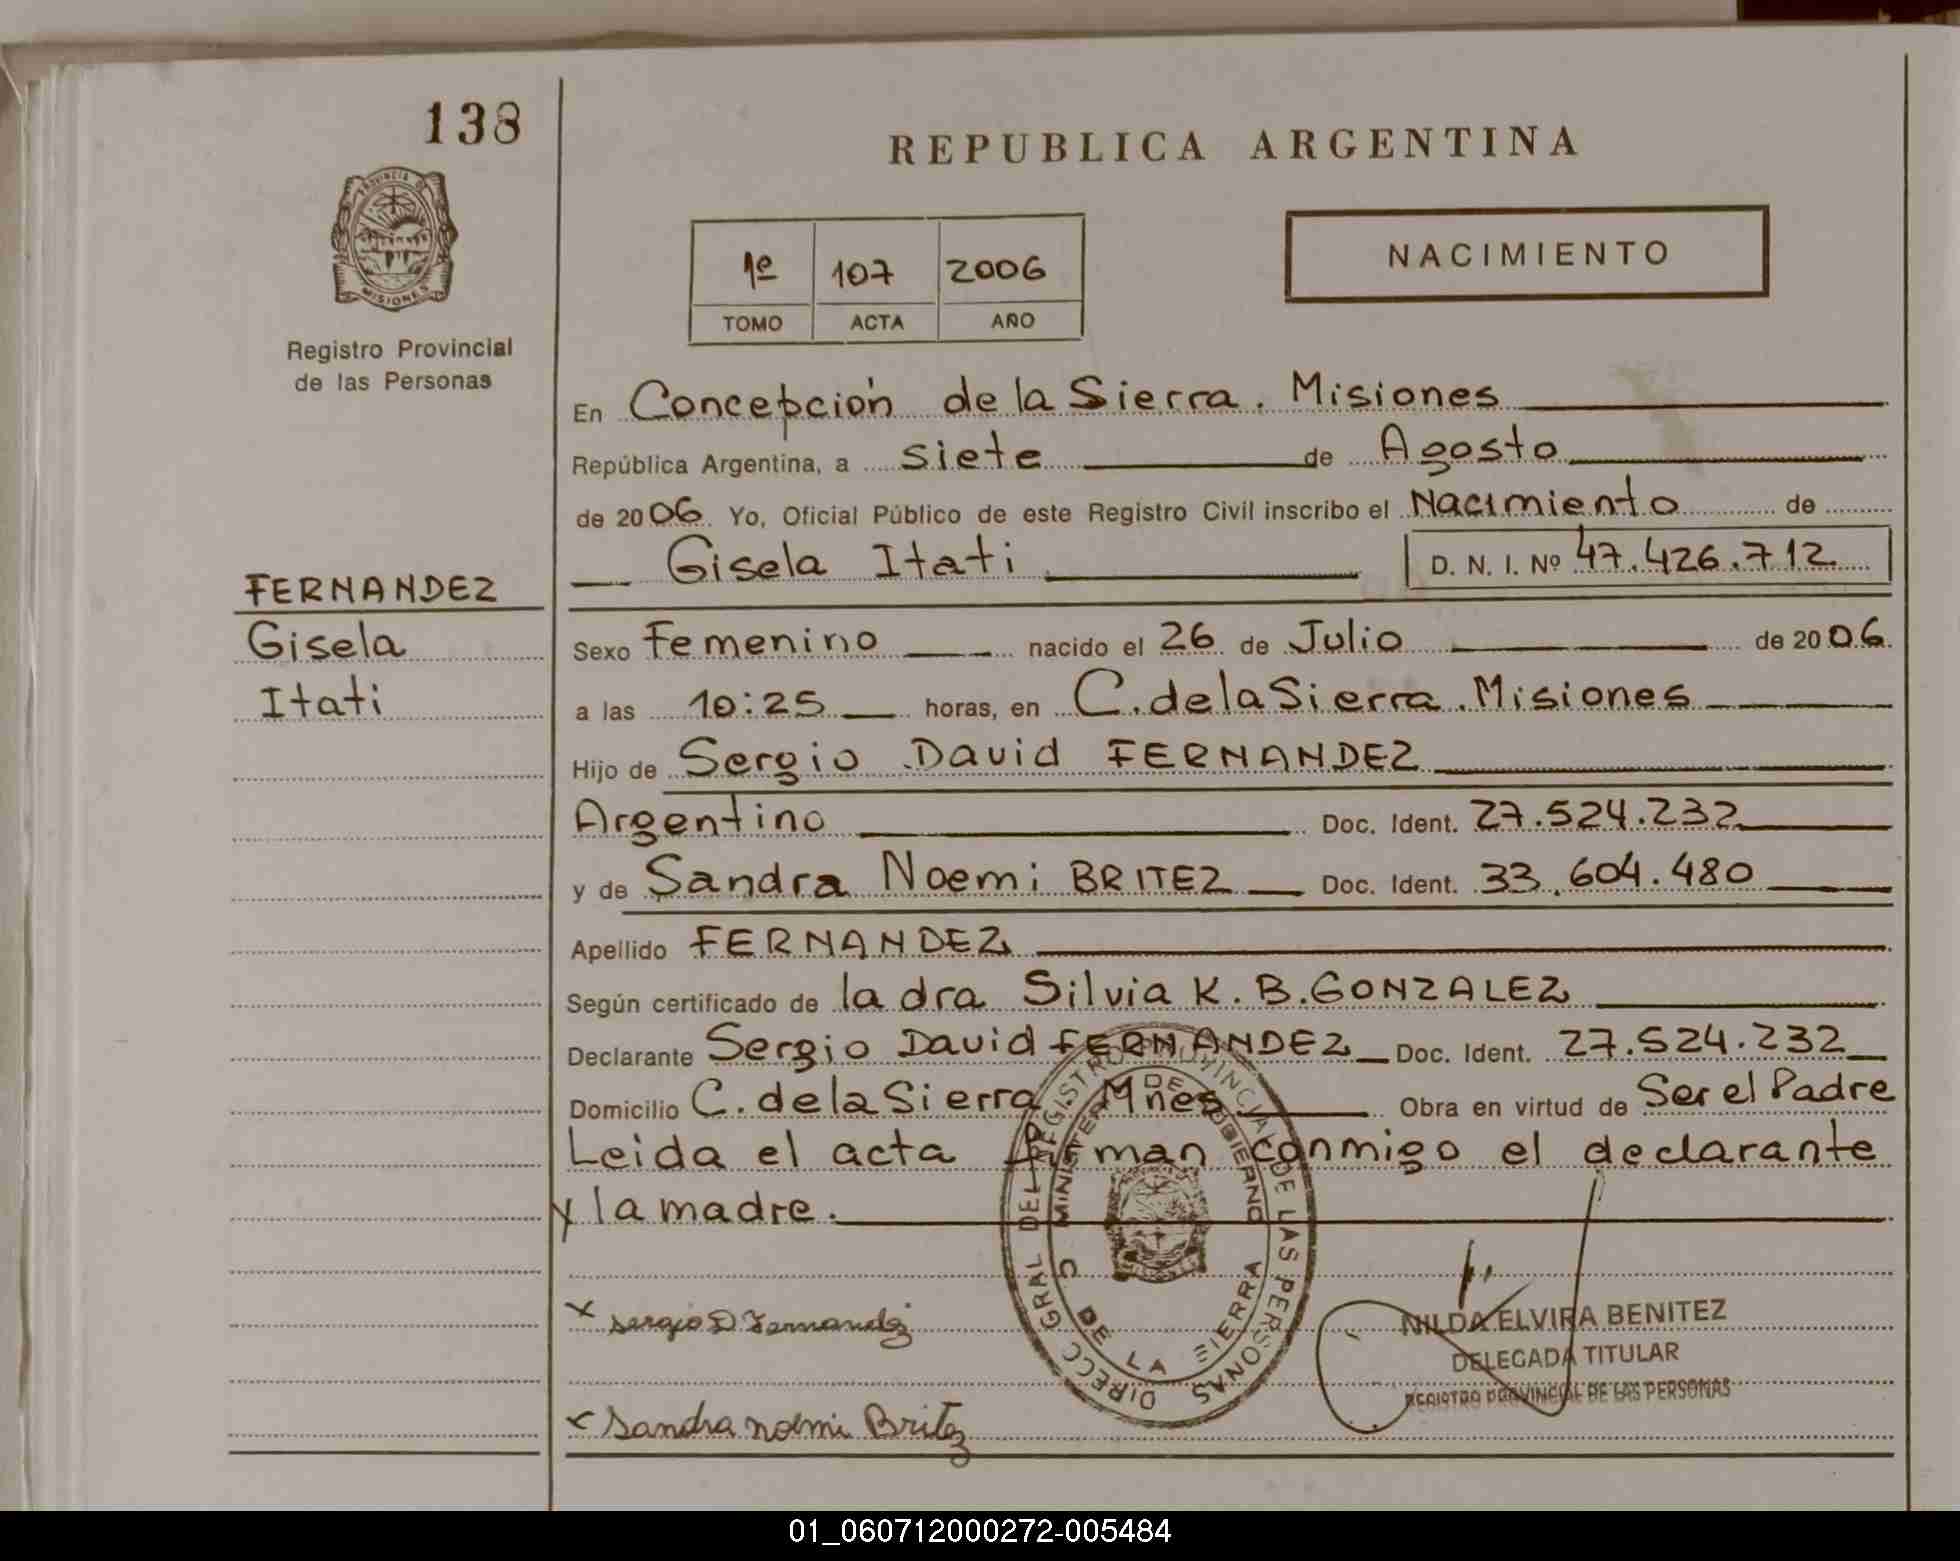 138
REPUBLICA ARGENTINA
PROVINCIA DE
MISIONES
Registro Provincial
de las Personas
1º 107 2006
TOMO ACTA AÑO
NACIMIENTO
En Concepción de la Sierra. Misiones
República Argentina, a siete de Agosto
de 2006 Yo, Oficial Público de este Registro Civil inscribo el Nacimiento de
Gisela Itati D. N. I. Nº 47.426.712
FERNANDEZ
Gisela
Itati
Sexo Femenino nacido el 26 de Julio de 2006
a las 10:25 horas, en C. de la Sierra. Misiones
Hijo de Sergio David FERNANDEZ
Argentino Doc. Ident. 27.524.232
y de Sandra Noemi BRITEZ Doc. Ident. 33.604.480
Apellido FERNANDEZ
Según certificado de la dra Silvia K. B. GONZALEZ
Declarante Sergio David FERNANDEZ Doc. Ident. 27.524.232
Domicilio C. de la Sierra Mnes Obra en virtud de Ser el Padre
Leida el acta firman conmigo el declarante
y la madre.
DIRECC GRAL DEL REGISTRO PROVINCIAL DE LAS PERSONAS
MINISTERIO DE GOBIERNO
C DE LA SIERRA
x Sergio D Fernandez
x Sandra noemi Britez
NILDA ELVIRA BENITEZ
DELEGADA TITULAR
REGISTRO PROVINCIAL DE LAS PERSONAS
01_060712000272-005484